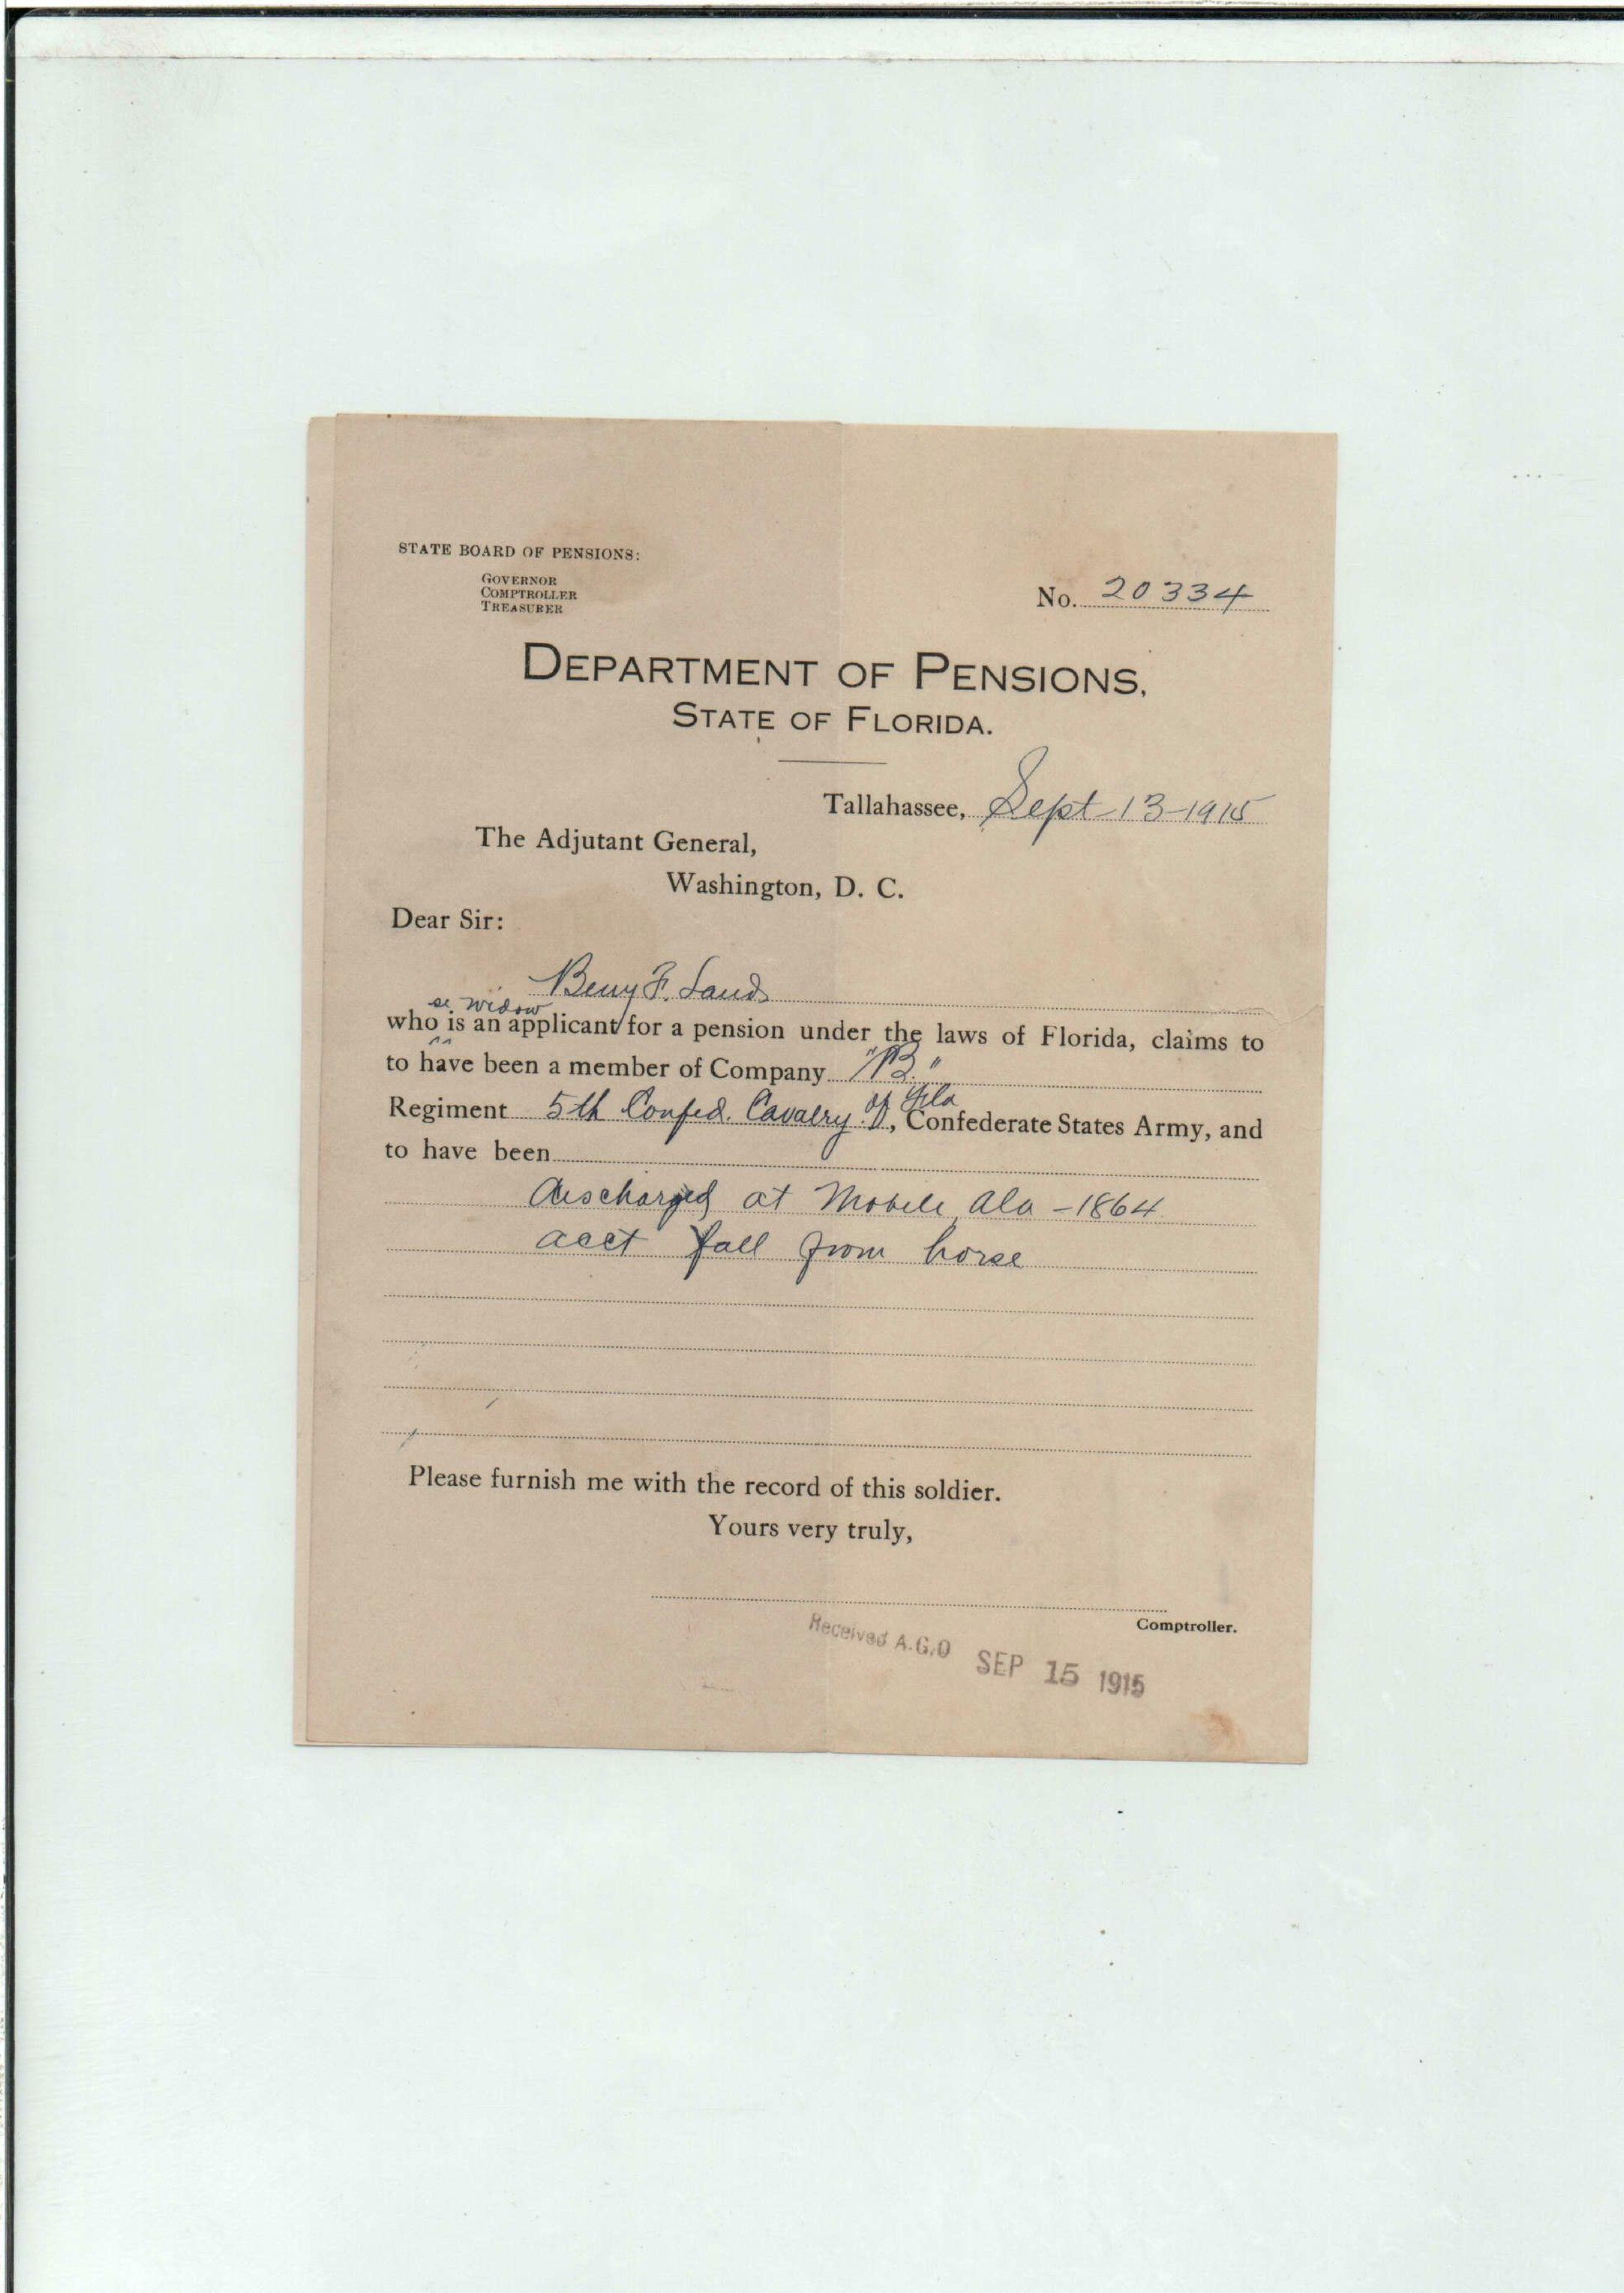 STATE BOARD OF PENSIONS:
GOVERNOR
COMPTROLLER
TREASURER
No. 20334
DEPARTMENT OF PENSIONS,
STATE OF FLORIDA.
Tallahassee, Sept-13-1915
The Adjutant General,
Washington, D. C.
Dear Sir:
Benny F. Sands
se widow
who is an applicant for a pension under the laws of Florida, claims to
to have been a member of Company "B."
Regiment 5th Confed. Cavalry of Fla, Confederate States Army, and
to have been
discharged at Mobile, Ala - 1864
acct fall from horse
Please furnish me with the record of this soldier.
Yours very truly,
Comptroller.
Received A.G.O SEP 15 1915